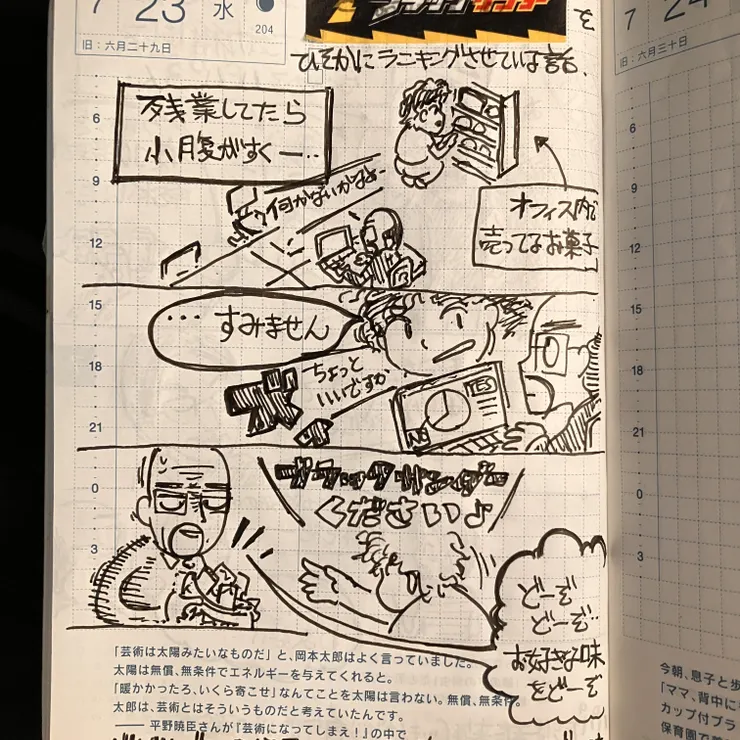 7 23 水
204
旧:六月二十九日
ブラックサンダー を
ひそかにランキングさせている話.
残業してたら
小腹がすくー…
何かないかなぁ~
オフィス内で
売ってるお菓子
… すみません
ちょっと
いいですか
YES
NO
ブラックサンダー
ください♪
どーぞ
どーぞ…
お好きな味
をどーぞ
6
9
12
15
18
21
0
3
「芸術は太陽みたいなものだ」と、岡本太郎はよく言っていました。
太陽は無償、無条件でエネルギーを与えてくれると。
「暖かかったろ、いくら寄こせ」なんてことを太陽は言わない。無償、無条件。
太郎は、芸術とはそういうものだと考えていたんです。
—— 平野暁臣さんが『芸術になってしまえ!』の中で
7 24
旧:六月三十日
6
9
12
15
18
21
0
3
今朝、息子と歩
「ママ、背中に
カップ付ブラ
保育園で着